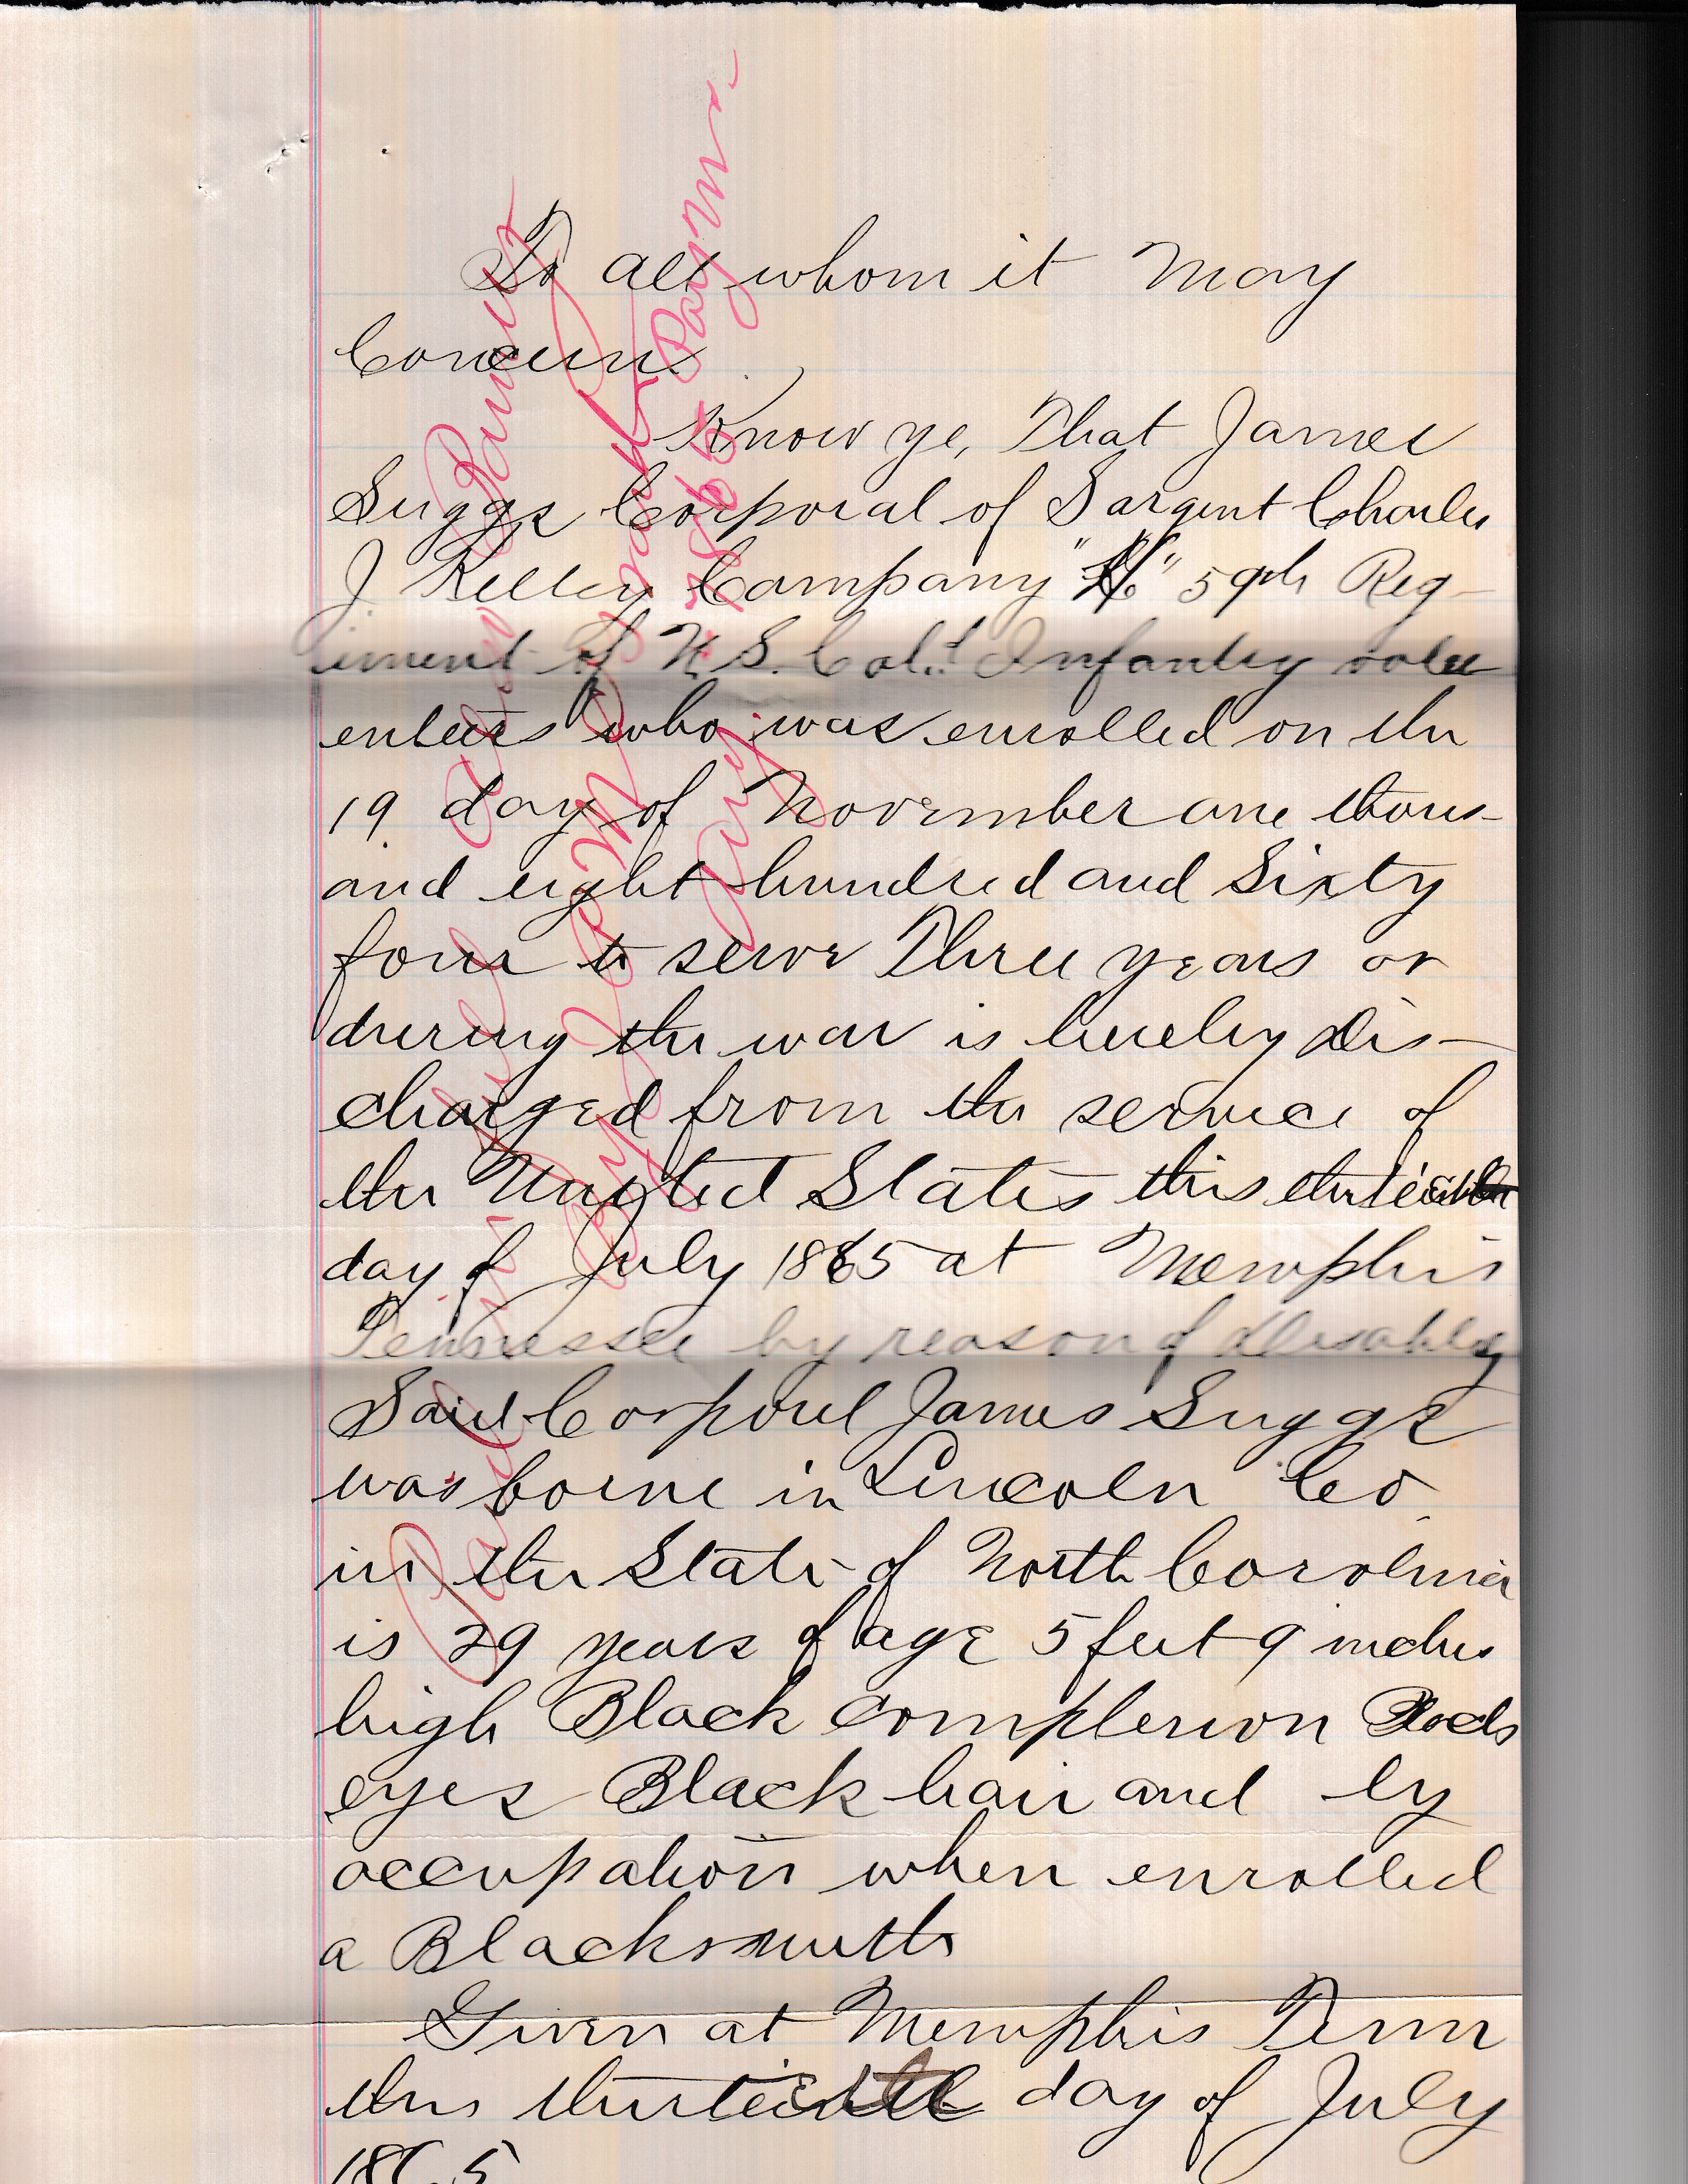 To all whom it May
Concern
Know ye, That James
Suggs Corporal of Sargent Charles
J Kelley Company "H" 59th Reg-
iment of U.S. Col.d Infantry volu
enteers who was enrolled on the
19 day of November one thous-
and eight hundred and Sixty
four to serve Three years or
during the war is hereby Dis-
charged from the service of
the United States this thirteenth
day of July 1865 at Memphis
Tennessee by reason of
Said Corporal James Suggs
was borne in Lincoln Co
in the State of North Carolina
is 29 years of age 5 feet 9 inches
high Black complexion
eyes Black hair and by
occupation when enrolled
a Blacksmith
Given at Memphis Tenn
this thirteenth day of July
1865
Paid in full
By
Aug. 1865 Paym